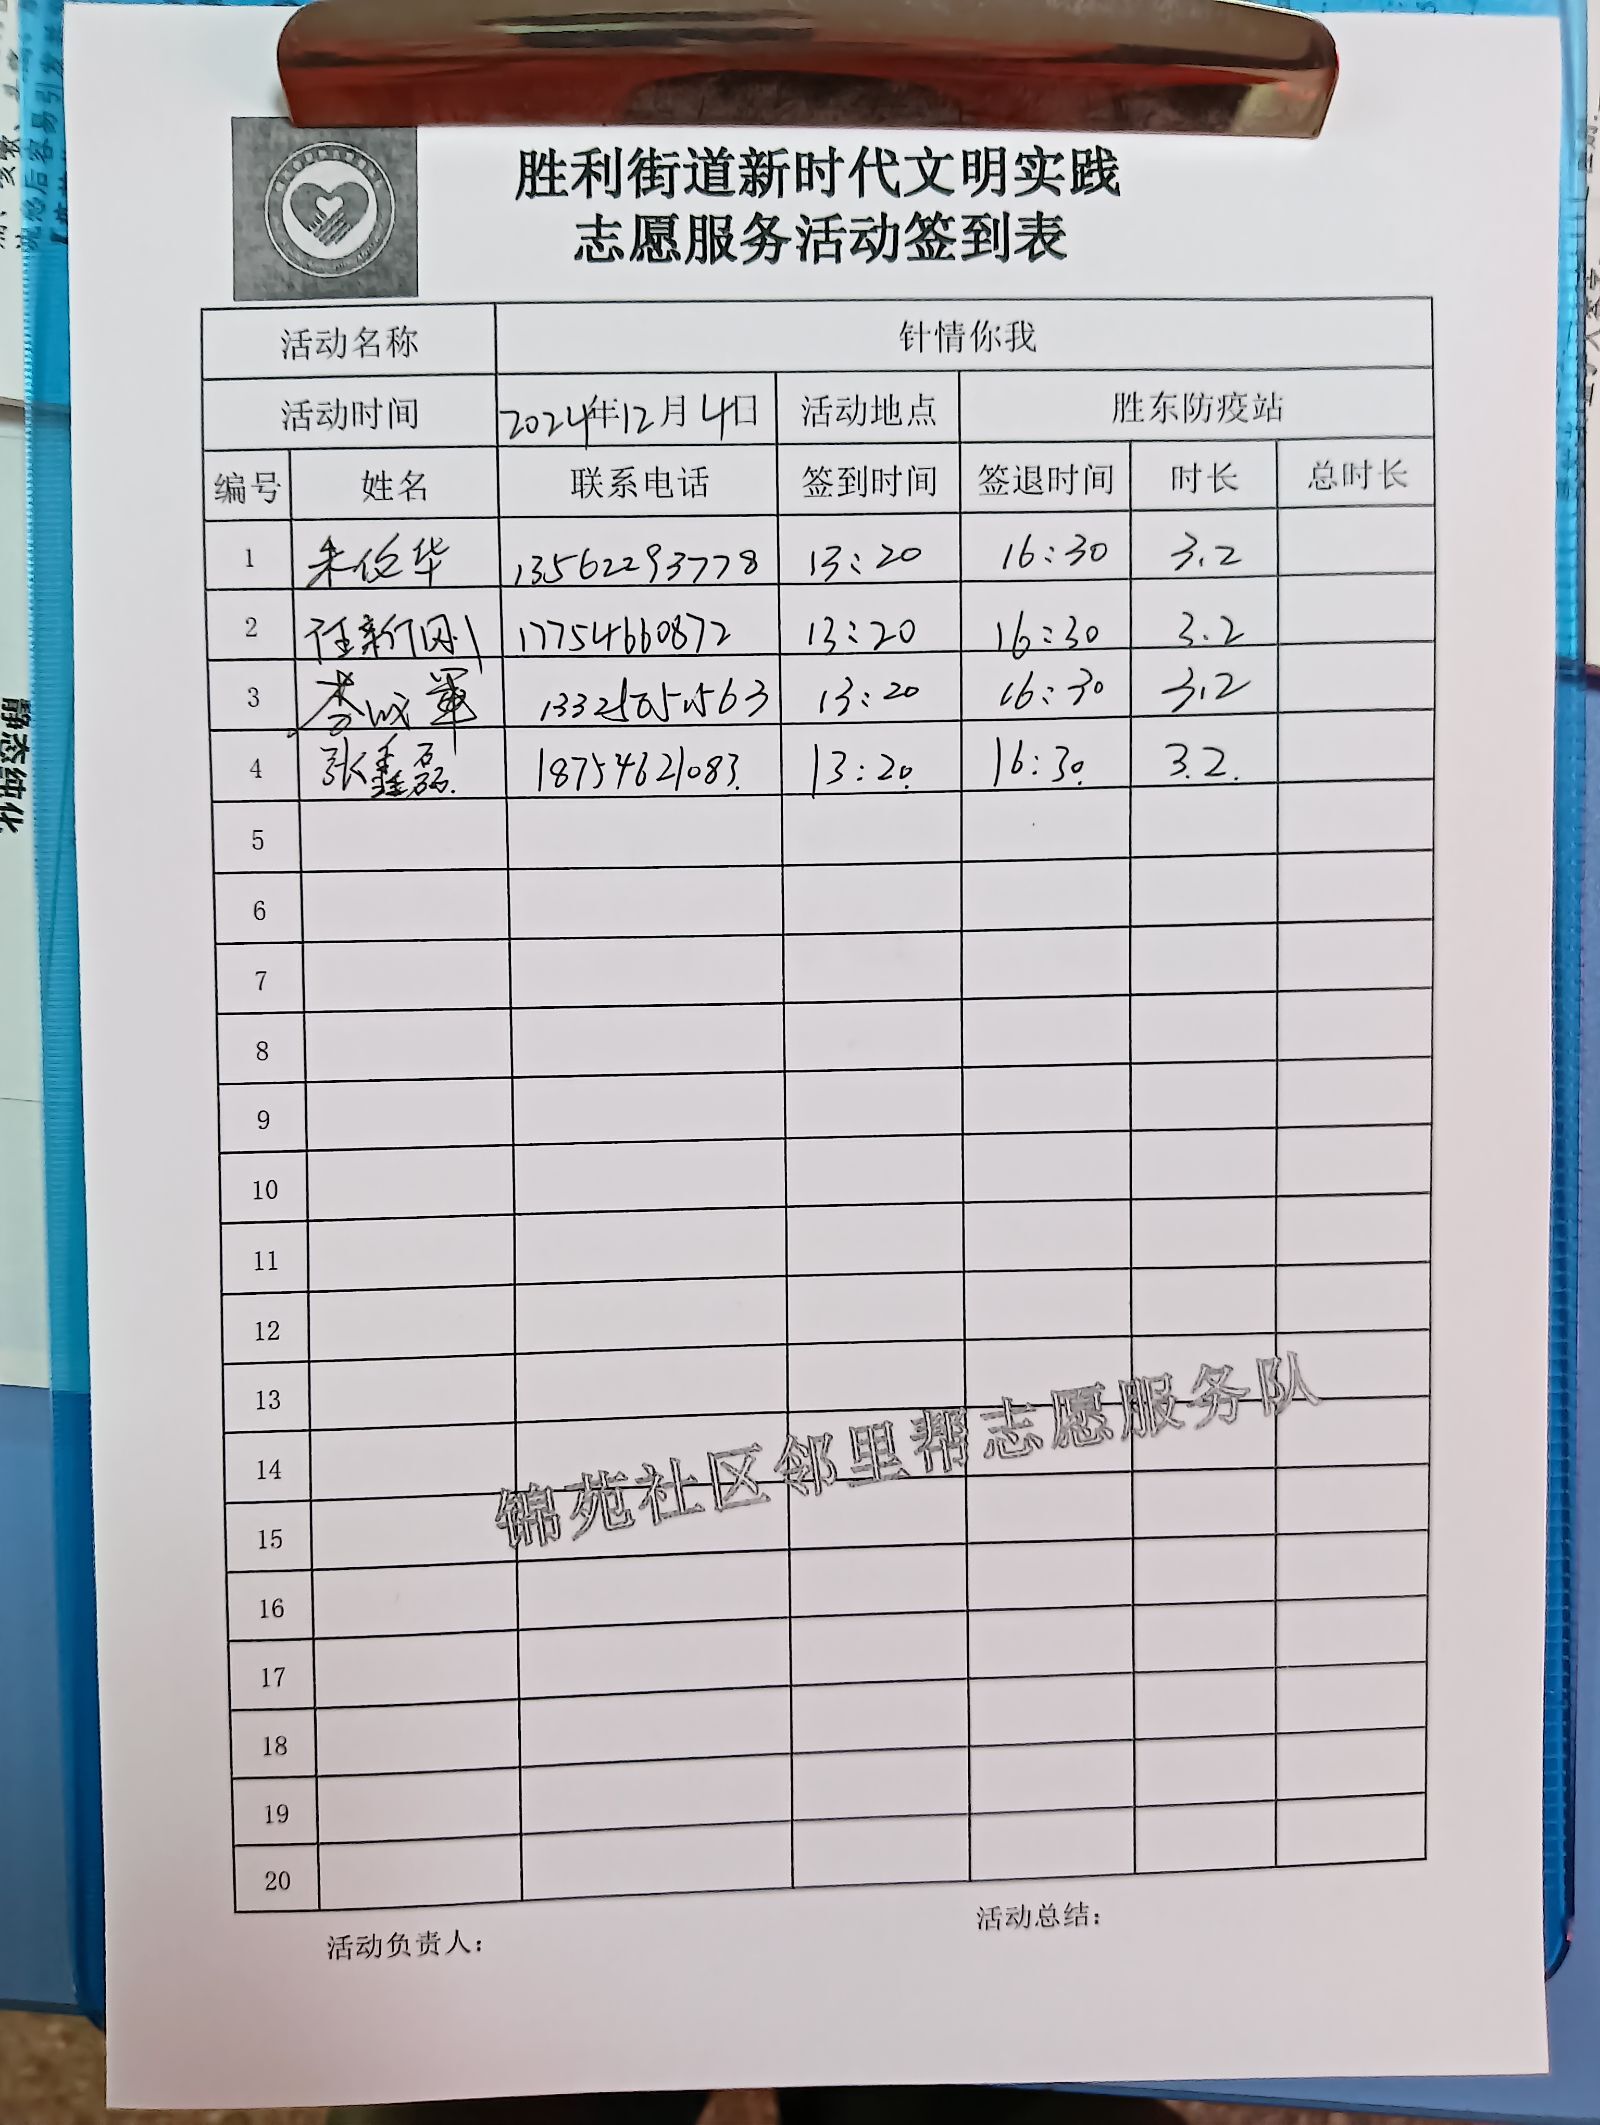 胜利街道新时代文明实践
志愿服务活动签到表
活动名称 针情你我
活动时间 2024年12月4日 活动地点 胜东防疫站
编号 姓名 联系电话 签到时间 签退时间 时长 总时长
1 朱俊华 13562293778 13:20 16:30 3.2
2 任新刚 17754660872 13:20 16:30 3.2
3 李成军 13:20 16:30 3.2
4 张鑫磊 18754621083. 13:20. 16:30. 3.2.
5
6
7
8
9
10
11
12
13
14
15
锦苑社区邻里帮志愿服务队
16
17
18
19
20
活动负责人：
活动总结：
静态钝化